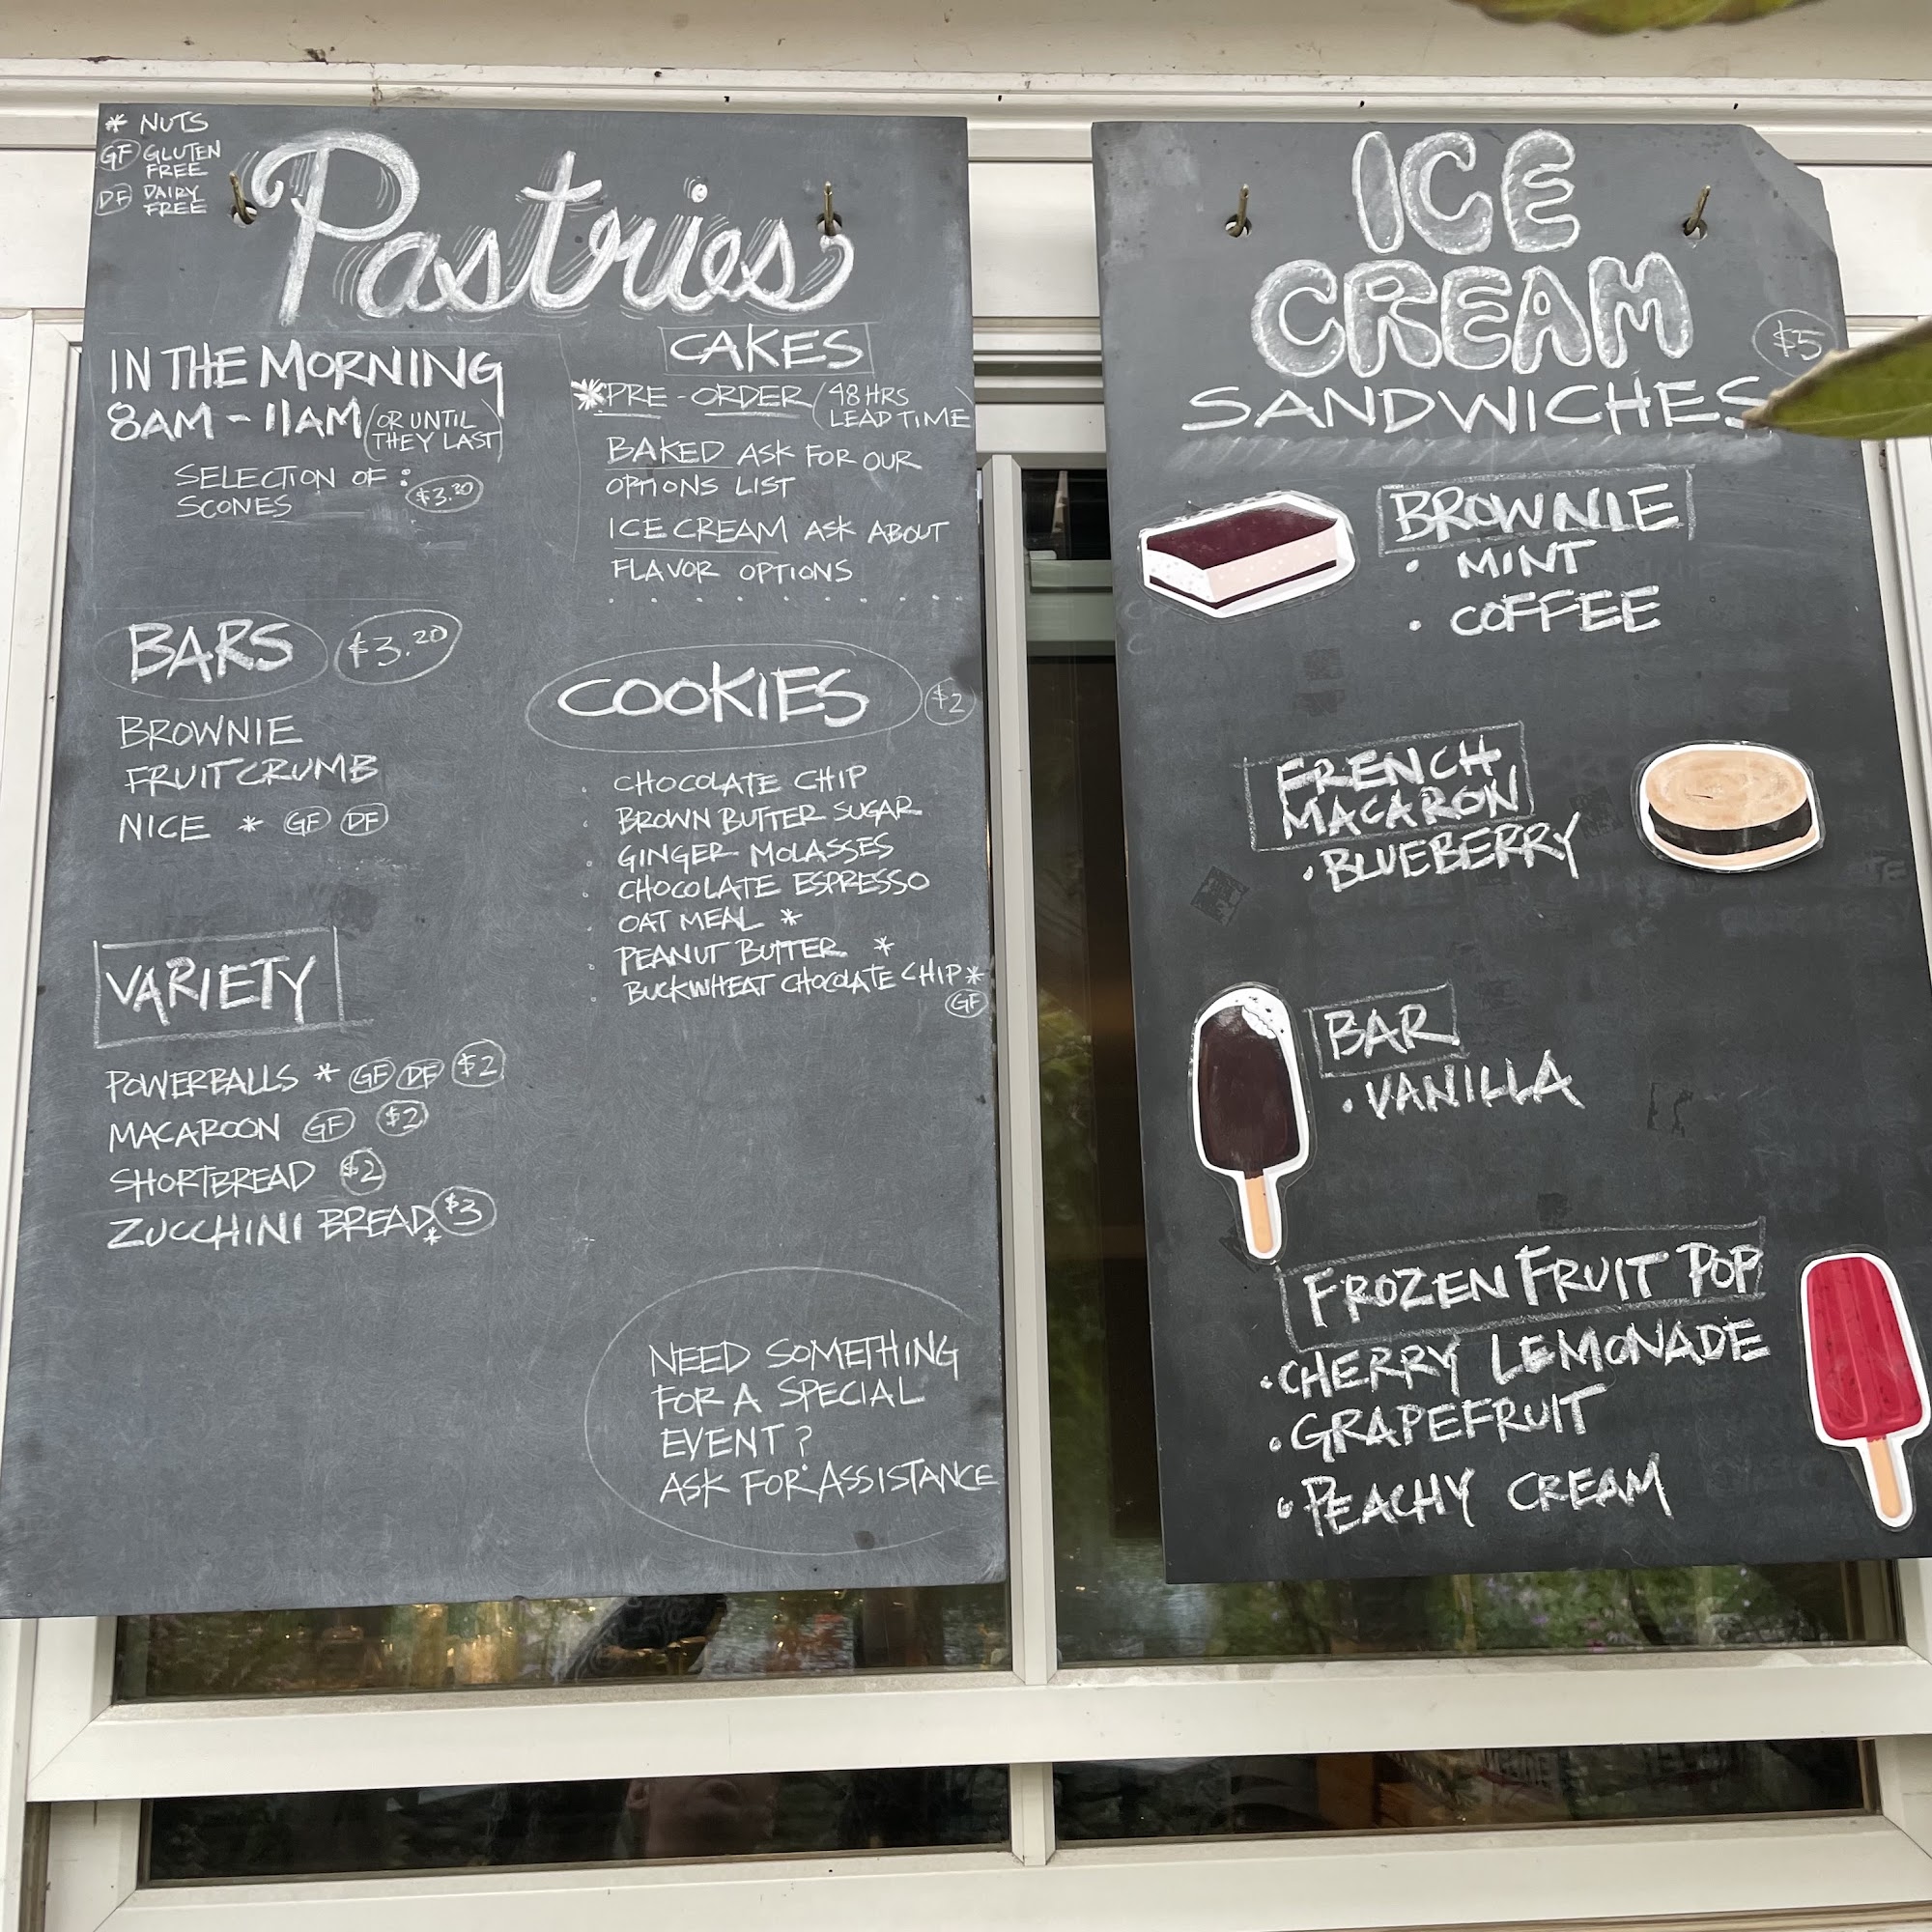 * NUTS
GF GLUTEN
FREE
DF DAIRY
FREE
Pastries
IN THE MORNING
8AM - 11AM (OR UNTIL
THEY LAST)
SELECTION OF:
SCONES $3.20
BARS $3.20
BROWNIE
FRUIT CRUMB
NICE * GF DF
VARIETY
POWERBALLS * GF DF $2
MACAROON GF $2
SHORTBREAD $2
ZUCCHINI BREAD * $3
CAKES
*PRE-ORDER (48 HRS
LEAD TIME)
BAKED ASK FOR OUR
OPTIONS LIST
ICE CREAM ASK ABOUT
FLAVOR OPTIONS
COOKIES $2
CHOCOLATE CHIP
BROWN BUTTER SUGAR
GINGER MOLASSES
CHOCOLATE ESPRESSO
OAT MEAL *
PEANUT BUTTER *
BUCKWHEAT CHOCOLATE CHIP *
GF
NEED SOMETHING
FOR A SPECIAL
EVENT?
ASK FOR ASSISTANCE
ICE
CREAM
$5
SANDWICHES
BROWNIE
• MINT
• COFFEE
FRENCH
MACARON
• BLUEBERRY
BAR
• VANILLA
FROZEN FRUIT POP
• CHERRY LEMONADE
• GRAPEFRUIT
• PEACHY CREAM